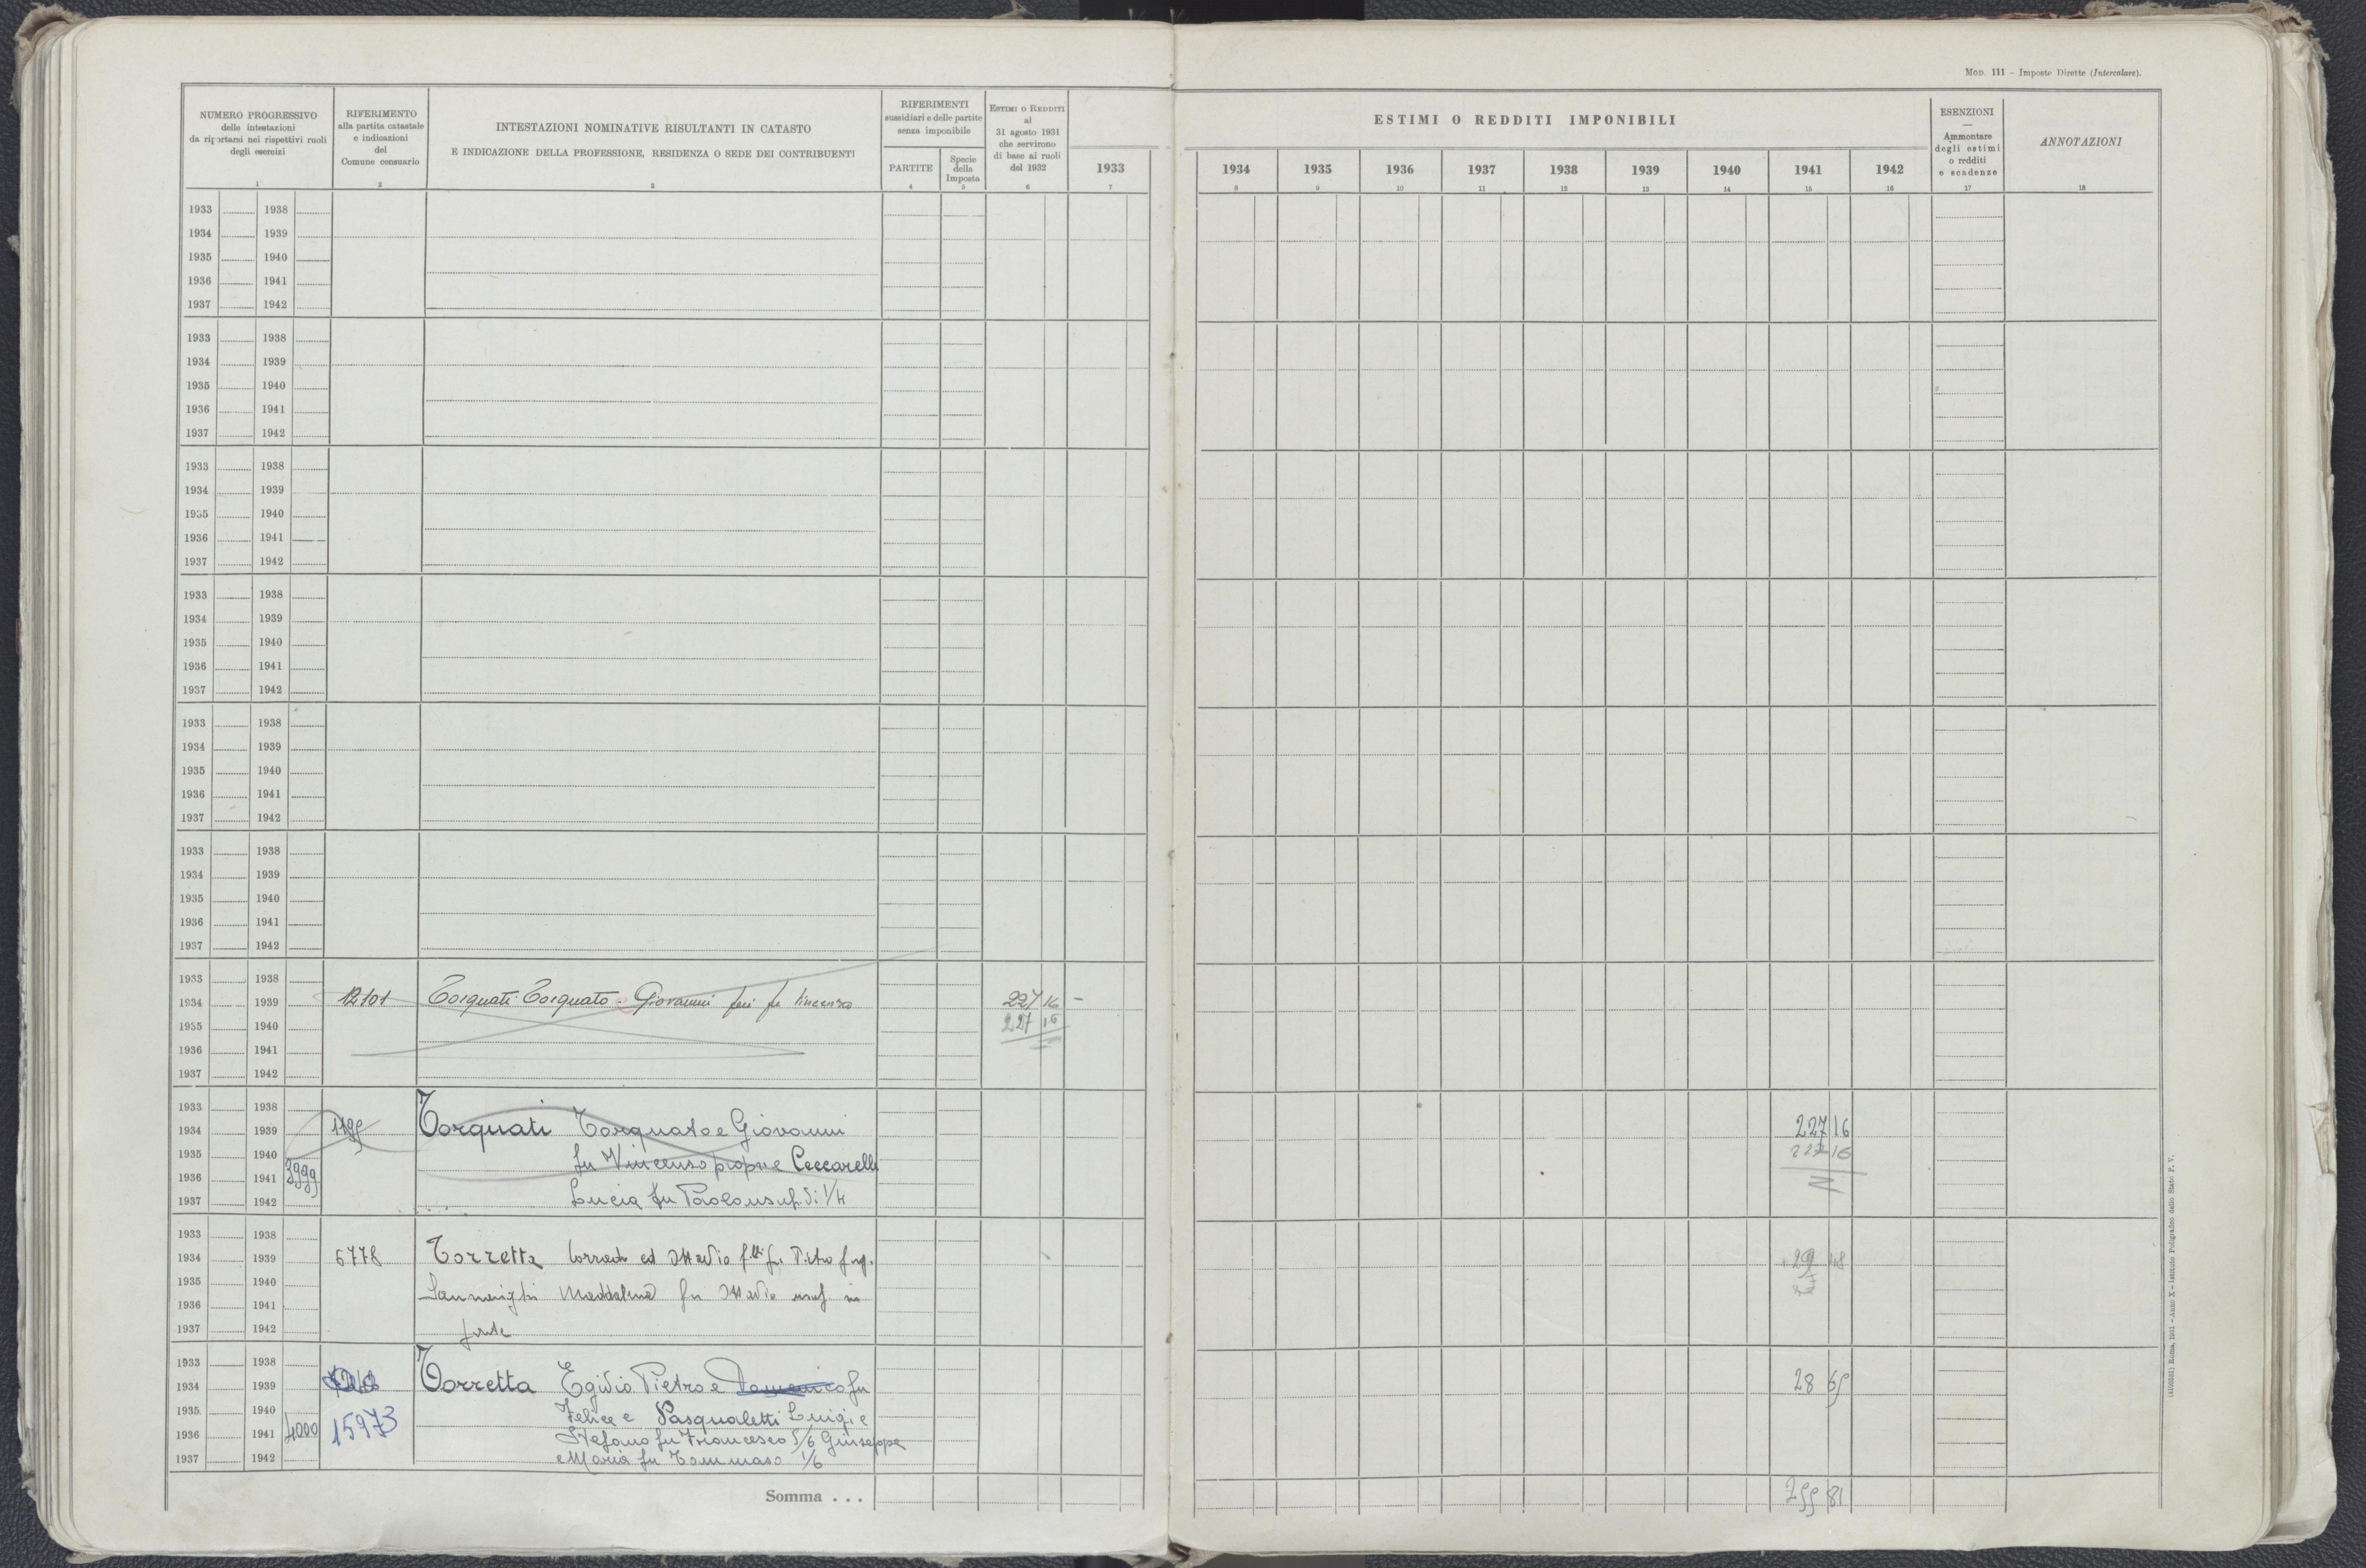 MOD. 111 - Imposte Dirette (Intercalare).
NUMERO PROGRESSIVO
delle intestazioni
da riportarsi nei rispettivi ruoli
degli esercizi
1
RIFERIMENTO
alla partita catastale
e indicazioni
del
Comune censuario
2
INTESTAZIONI NOMINATIVE RISULTANTI IN CATASTO
E INDICAZIONE DELLA PROFESSIONE, RESIDENZA O SEDE DEI CONTRIBUENTI
3
RIFERIMENTI
sussidiari e delle partite
senza imponibile
PARTITE
4
Specie
della
Imposta
5
ESTIMI O REDDITI
al
31 agosto 1931
che servirono
di base ai ruoli
del 1932
6
1933
7
ESTIMI O REDDITI IMPONIBILI
1934 1935 1936 1937 1938 1939 1940 1941 1942
8 9 10 11 12 13 14 15 16
ESENZIONI
—
Ammontare
degli estimi
o redditi
e scadenze
17
ANNOTAZIONI
18
1933 1938
1934 1939
1935 1940
1936 1941
1937 1942
1933 1938
1934 1939
1935 1940
1936 1941
1937 1942
1933 1938
1934 1939
1935 1940
1936 1941
1937 1942
1933 1938
1934 1939
1935 1940
1936 1941
1937 1942
1933 1938
1934 1939
1935 1940
1936 1941
1937 1942
1933 1938
1934 1939
1935 1940
1936 1941
1937 1942
1933 1938
1934 1939 12101 Torquati Torquato e Giovanni fu Vincenzo 227 16 -
1935 1940 227 16
1936 1941
1937 1942
1933 1938
1934 1939 Torquati Torquato e Giovanni 227 16
1935 1940 fu Vincenzo propr e Ceccarelli 227 16
1936 1941 3999
1937 1942 Lucia fu Paolo usuf. di 1/4
1933 1938
1934 1939 6778 Torretta Corrado ed Ottavio f.lli fu Pietro 29 48
1935 1940
1936 1941 Maddalena fu Ottavio usuf in
1937 1942 parte
1933 1938
1934 1939 Torretta Egidio Pietro e Domenico fu 28 65
1935 1940 Felice e Pasqualetti Luigi e
1936 1941 4000 15973 Stefano fu Francesco 5/6 Giuseppe
1937 1942 e Maria fu Tommaso 1/6
Somma . . . 755 81
(4190251) Roma, 1931 - Anno X - Istituto Poligrafico dello Stato P. V.